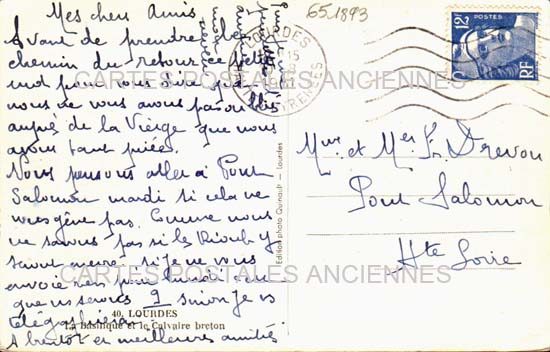 Mes chers Amis
Avant de prendre le
chemin du retour ce petit
mot pour vous dire que
nous ne vous avons pas oubliés
auprès de la Vierge que nous
avons tant priée.
Nous pensons aller à Pont
Salomon mardi si cela ne
vous gêne pas. Comme nous
ne savons pas si les
seront si je ne vous
envoie rien pour
que nous serons 9 sinon je vs
télégraphierai
A bientôt et meilleures amitiés
40. LOURDES
La Basilique et le Calvaire breton
Edition photo Quinault - Lourdes
LOURDES
PYRENEES
651893
12F
POSTES
RF
Mme et Mr Fr. Drevon
Pont Salomon
Hte Loire
CARTES POSTALES ANCIENNES
CARTES POSTALES ANCIENNES